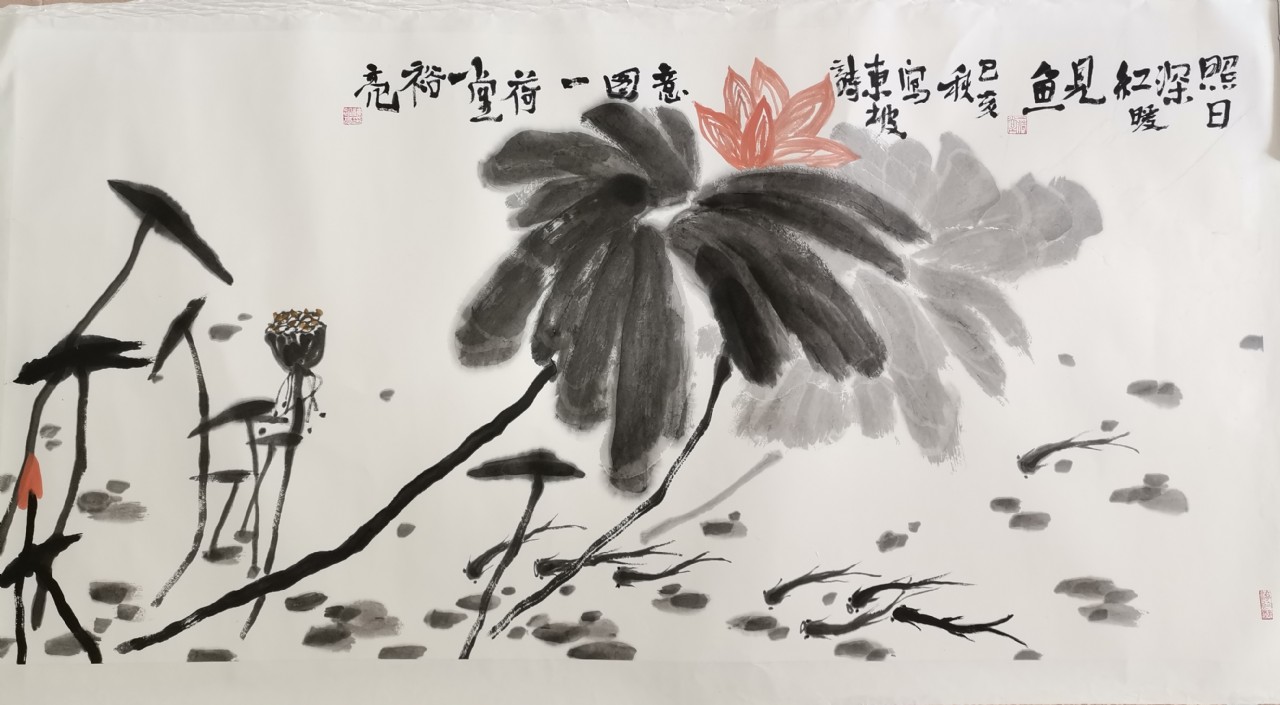 照日深紅暖見鱼
己亥秋寫東坡詩意图一荷堂裕亮